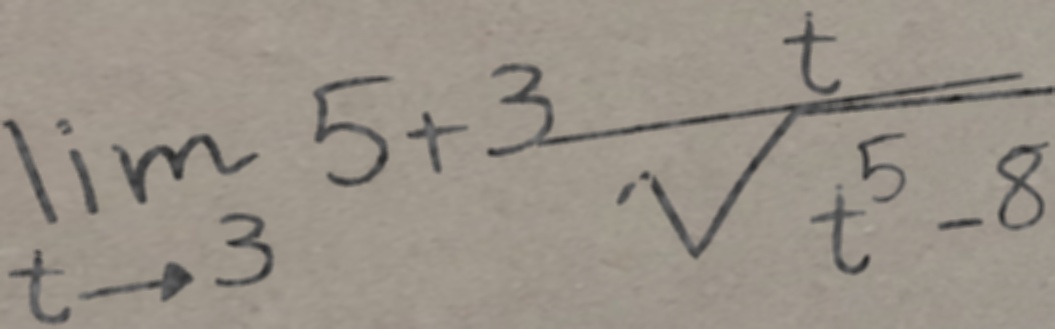 lim t→3 5+3 t/√(t⁵-8)